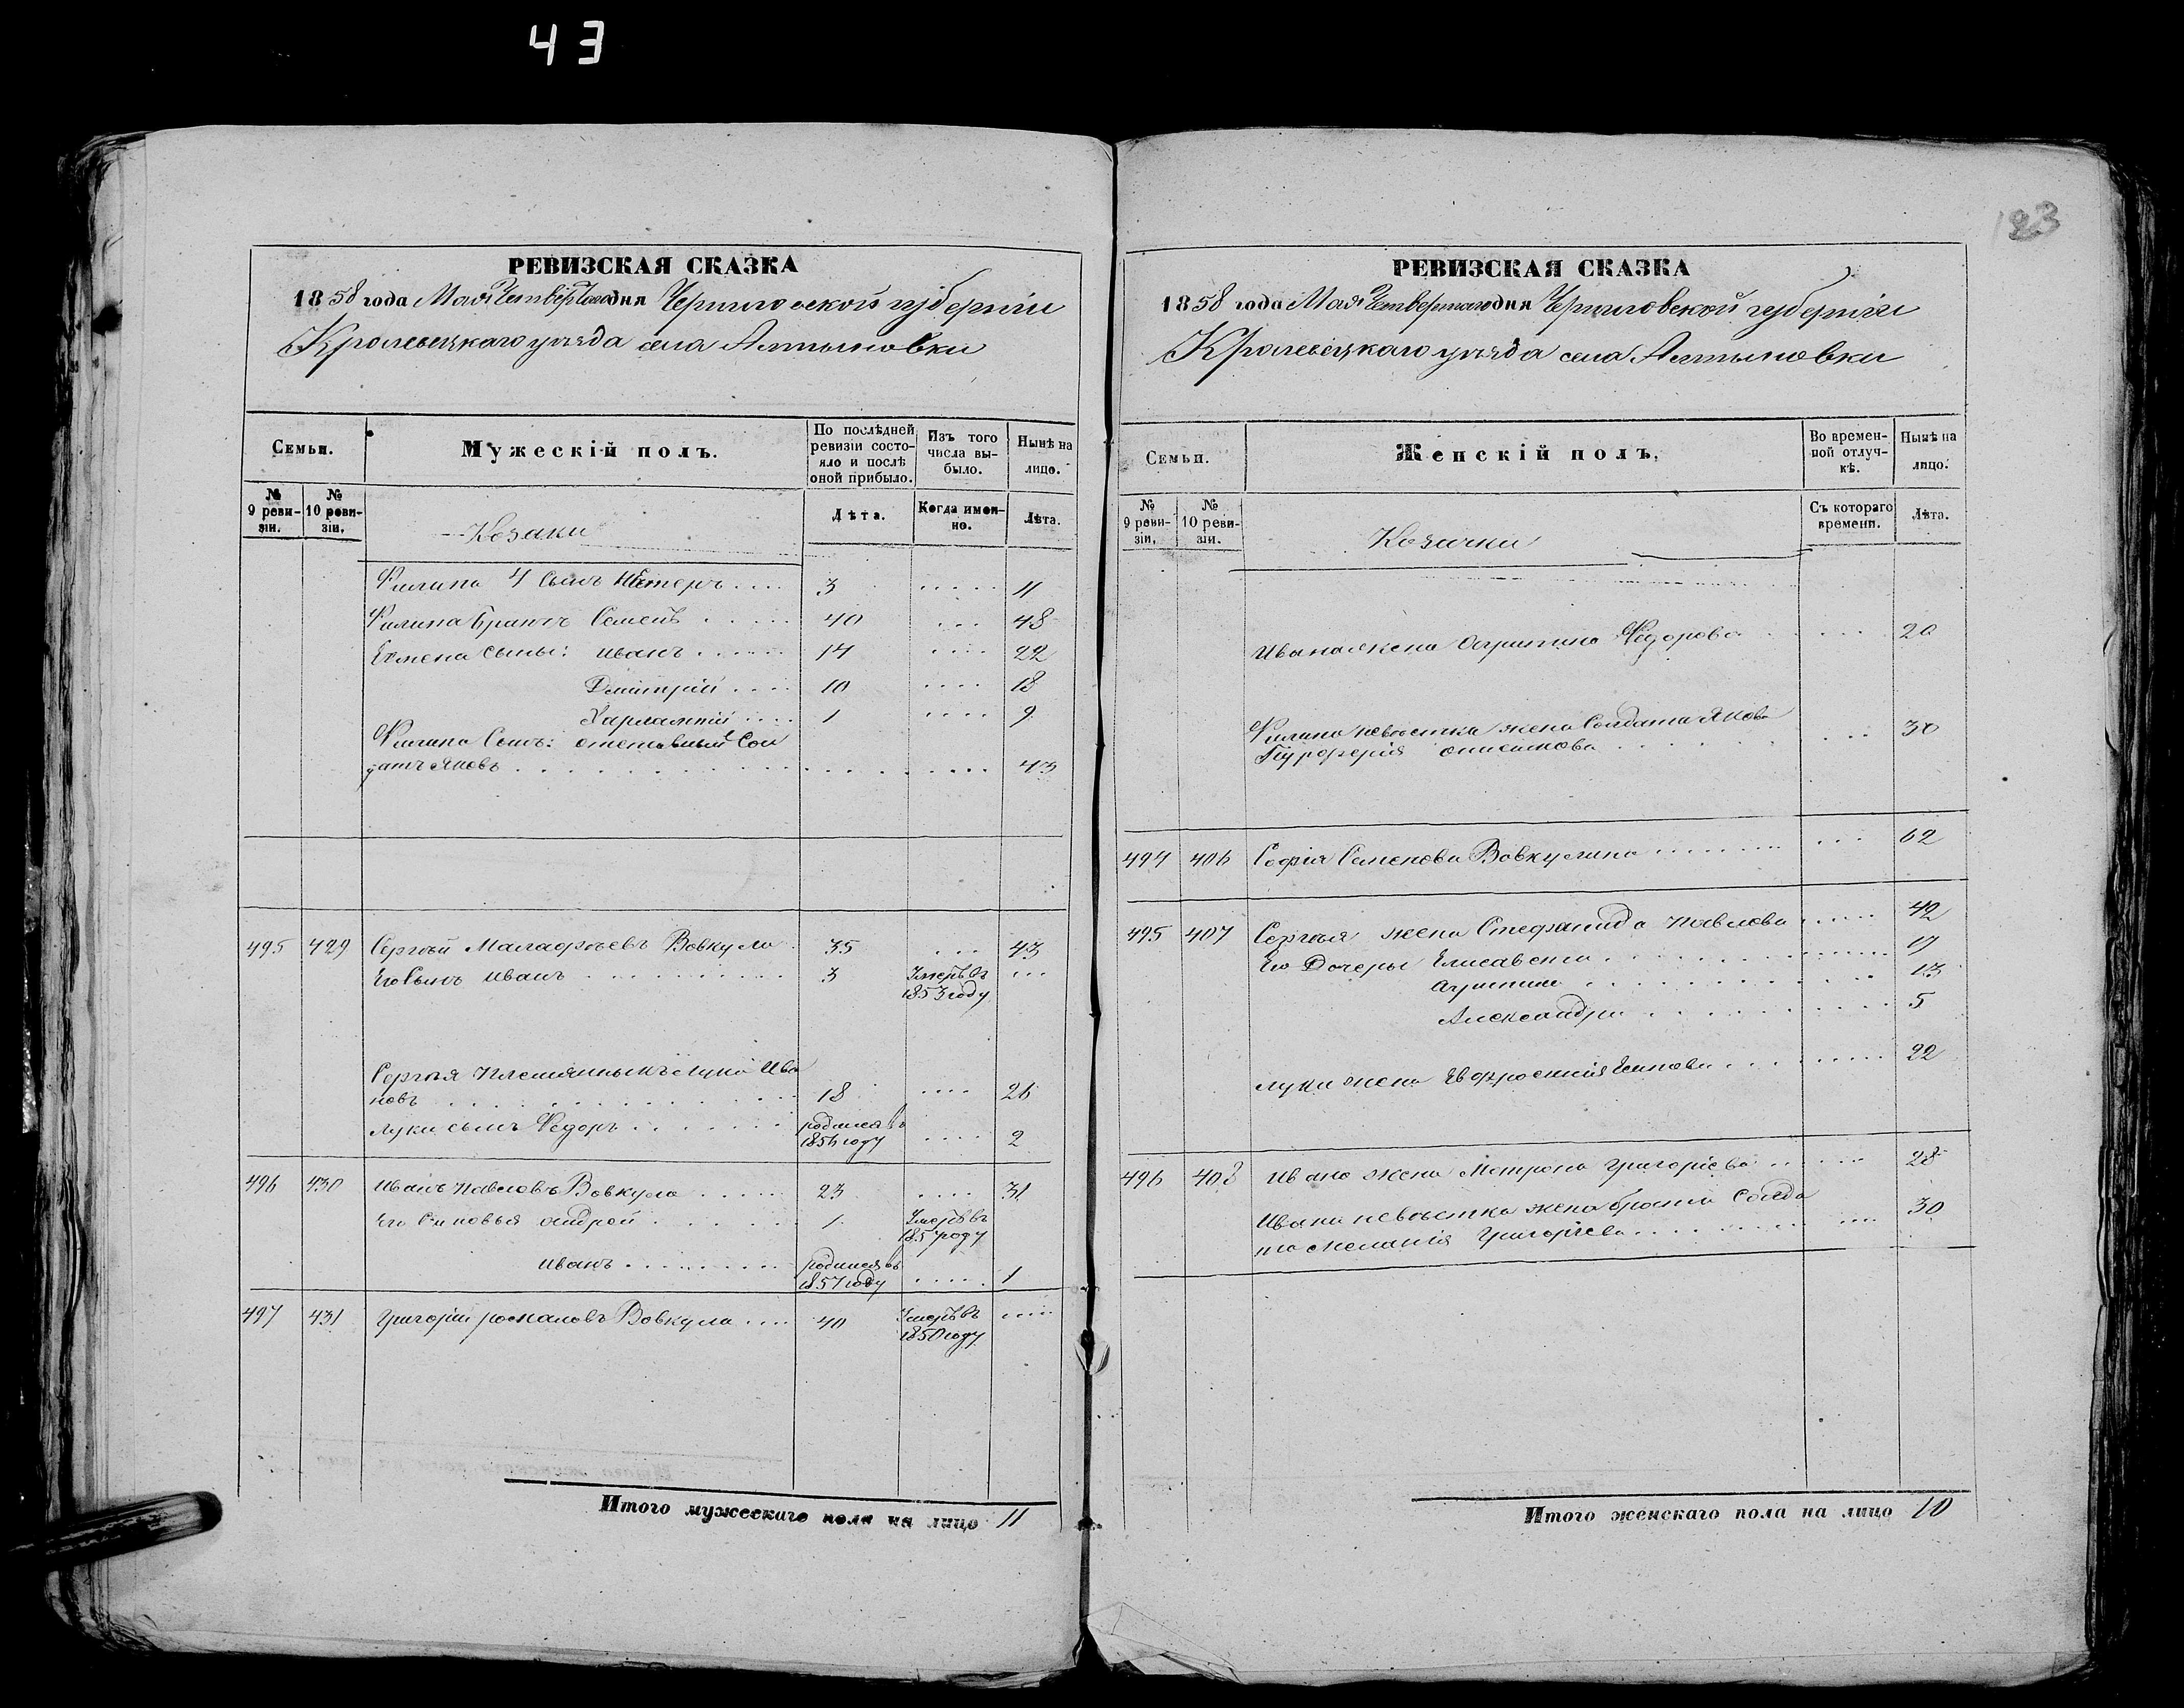 43
123
РЕВИЗСКАЯ СКАЗКА
1858 года Мая Четвертаго дня Черниговской губернiи
Кролевецкаго уѣзда села Алтыновки
Семьи.
Мужескiй полъ.
По послѣдней ревизiи состояло и послѣ оной прибыло.
Изъ того числа выбыло.
Нынѣ на лицо.
№ 9 ревизiи.
№ 10 ревизiи.
Козаки
Лѣта.
Когда именно.
Лѣта.
Филипа 4 сынъ .... 3 ..... 11
Филипа братъ Семенъ ..... 40 ... 48
сыны: иванъ ...... 14 .... 22
Дмитрiй .... 10 .... 18
Харлампiй .... 1 .... 9
Филипа Сынъ: отставный Сол
датъ Яковъ ............ 43
495 429 Сергѣй Малафѣевъ Вовкула . 35 ... 43
Его Сынъ иванъ .......... 3 Умеръ въ 1853 году ...
Сергѣя Племянныкъ Лука Ива
новъ ........... 18 .... 26
Луки сынъ Федоръ ....... родился въ 1856 году .... 2
496 430 Иванъ Павловъ Вовкула ..... 23 .... 31
Его Синовья андрей ...... 1. Умеръ въ 1857 году
иванъ ......... родился въ 1857 году ..... 1
497 431 Григорiй романовъ Вовкула .... 40 Умеръ въ 1850 году .....
Итого мужескаго пола на лицо 11
РЕВИЗСКАЯ СКАЗКА
1858 года Мая Четвертаго дня Черниговской губернiи
Кролевецкаго уѣзда села Алтыновки
Семьи.
Женскiй полъ.
Во временной отлучкѣ.
Нынѣ на лицо.
№ 9 ревизiи.
№ 10 ревизiи.
Козачки
Съ котораго времени.
Лѣта.
Ивана жена Агрипина Федорова ..... 20
Филипа невѣстка жена Солдата Якова
........ 30
494 406 Софiя Семенова Вовкулина ........ ... 62
495 407 Сергѣя жена Стефанида павлова ...... 42
Его Дочеры Елисавета ............. 17
агрипина ........... 13
Александра .......... 5
Луки жена Евфросинiя ......... 22
496 408 Ивана жена Мотрона григорiева ..... 28
Ивана невѣстка жена брата Солда
та меланiя Григорiева ............ 30
Итого женскаго пола на лицо 10